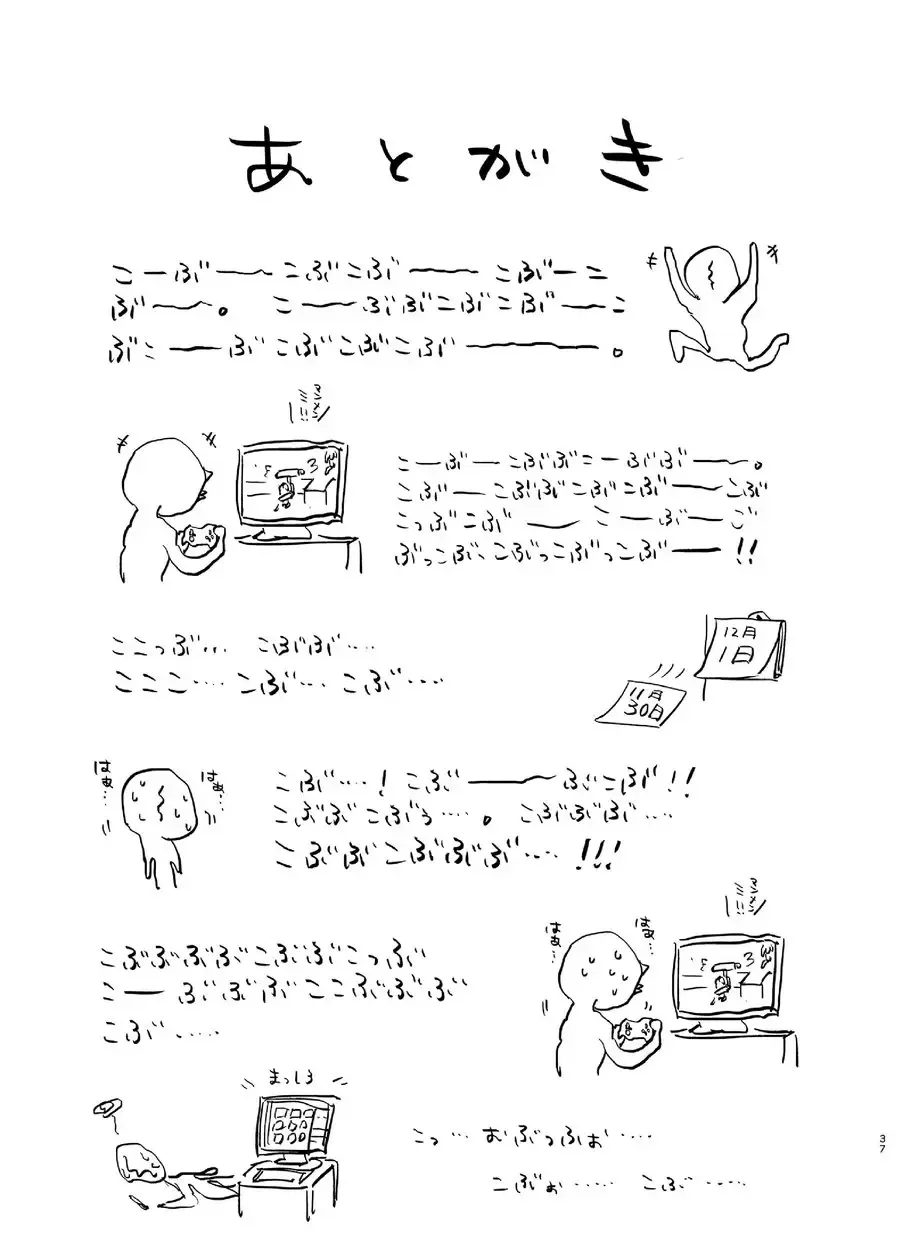 あとがき
こーぶーーこぶこぶーーこぶーこ
ぶーー。こーーぶぶこぶこぶーーこ
ぶこーーぶこぶこぶこぶーーーー。
こーぶーこぶぶこーぶぶーー。
こぶーこぶぶこぶこぶーーこぶ
こっぶこぶーーこーぶーこ
ぶっこぶ、こぶっこぶっこぶー!!
ここっぶ… こぶぶ……
こここ…… こぶ… こぶ……
12月
1日
11月
30日
はぁ…
はぁ…
こぶ……! こぶーーーぶこぶ!!
こぶぶこぶぅ……。 こぶぶぶ……
こぶぶこぶぶぶ……!!!
はぁ…
はぁ…
こぶぶぶぶこぶぶこっぶ
こーぶぶぶここぶぶぶぶ
こぶ……
まっしろ
こっ… おぶっふぉ……
こぶぉ…… こぶ……
37